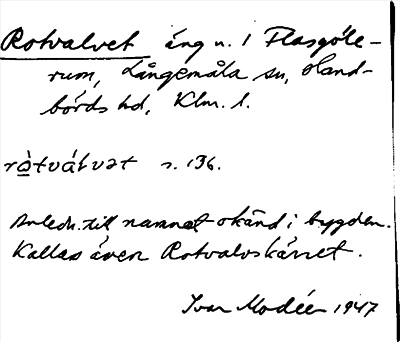 Rotvalvet äng u. 1 Flasgöle-
rum, Långemåla sn, Hand-
börds hd, Klm. l.
ròtvál̀vət s. 136.
Anledn. till namnet okänd i bygden.
Kallas även Rotvalvskärret.
Ivar Modéer 1947